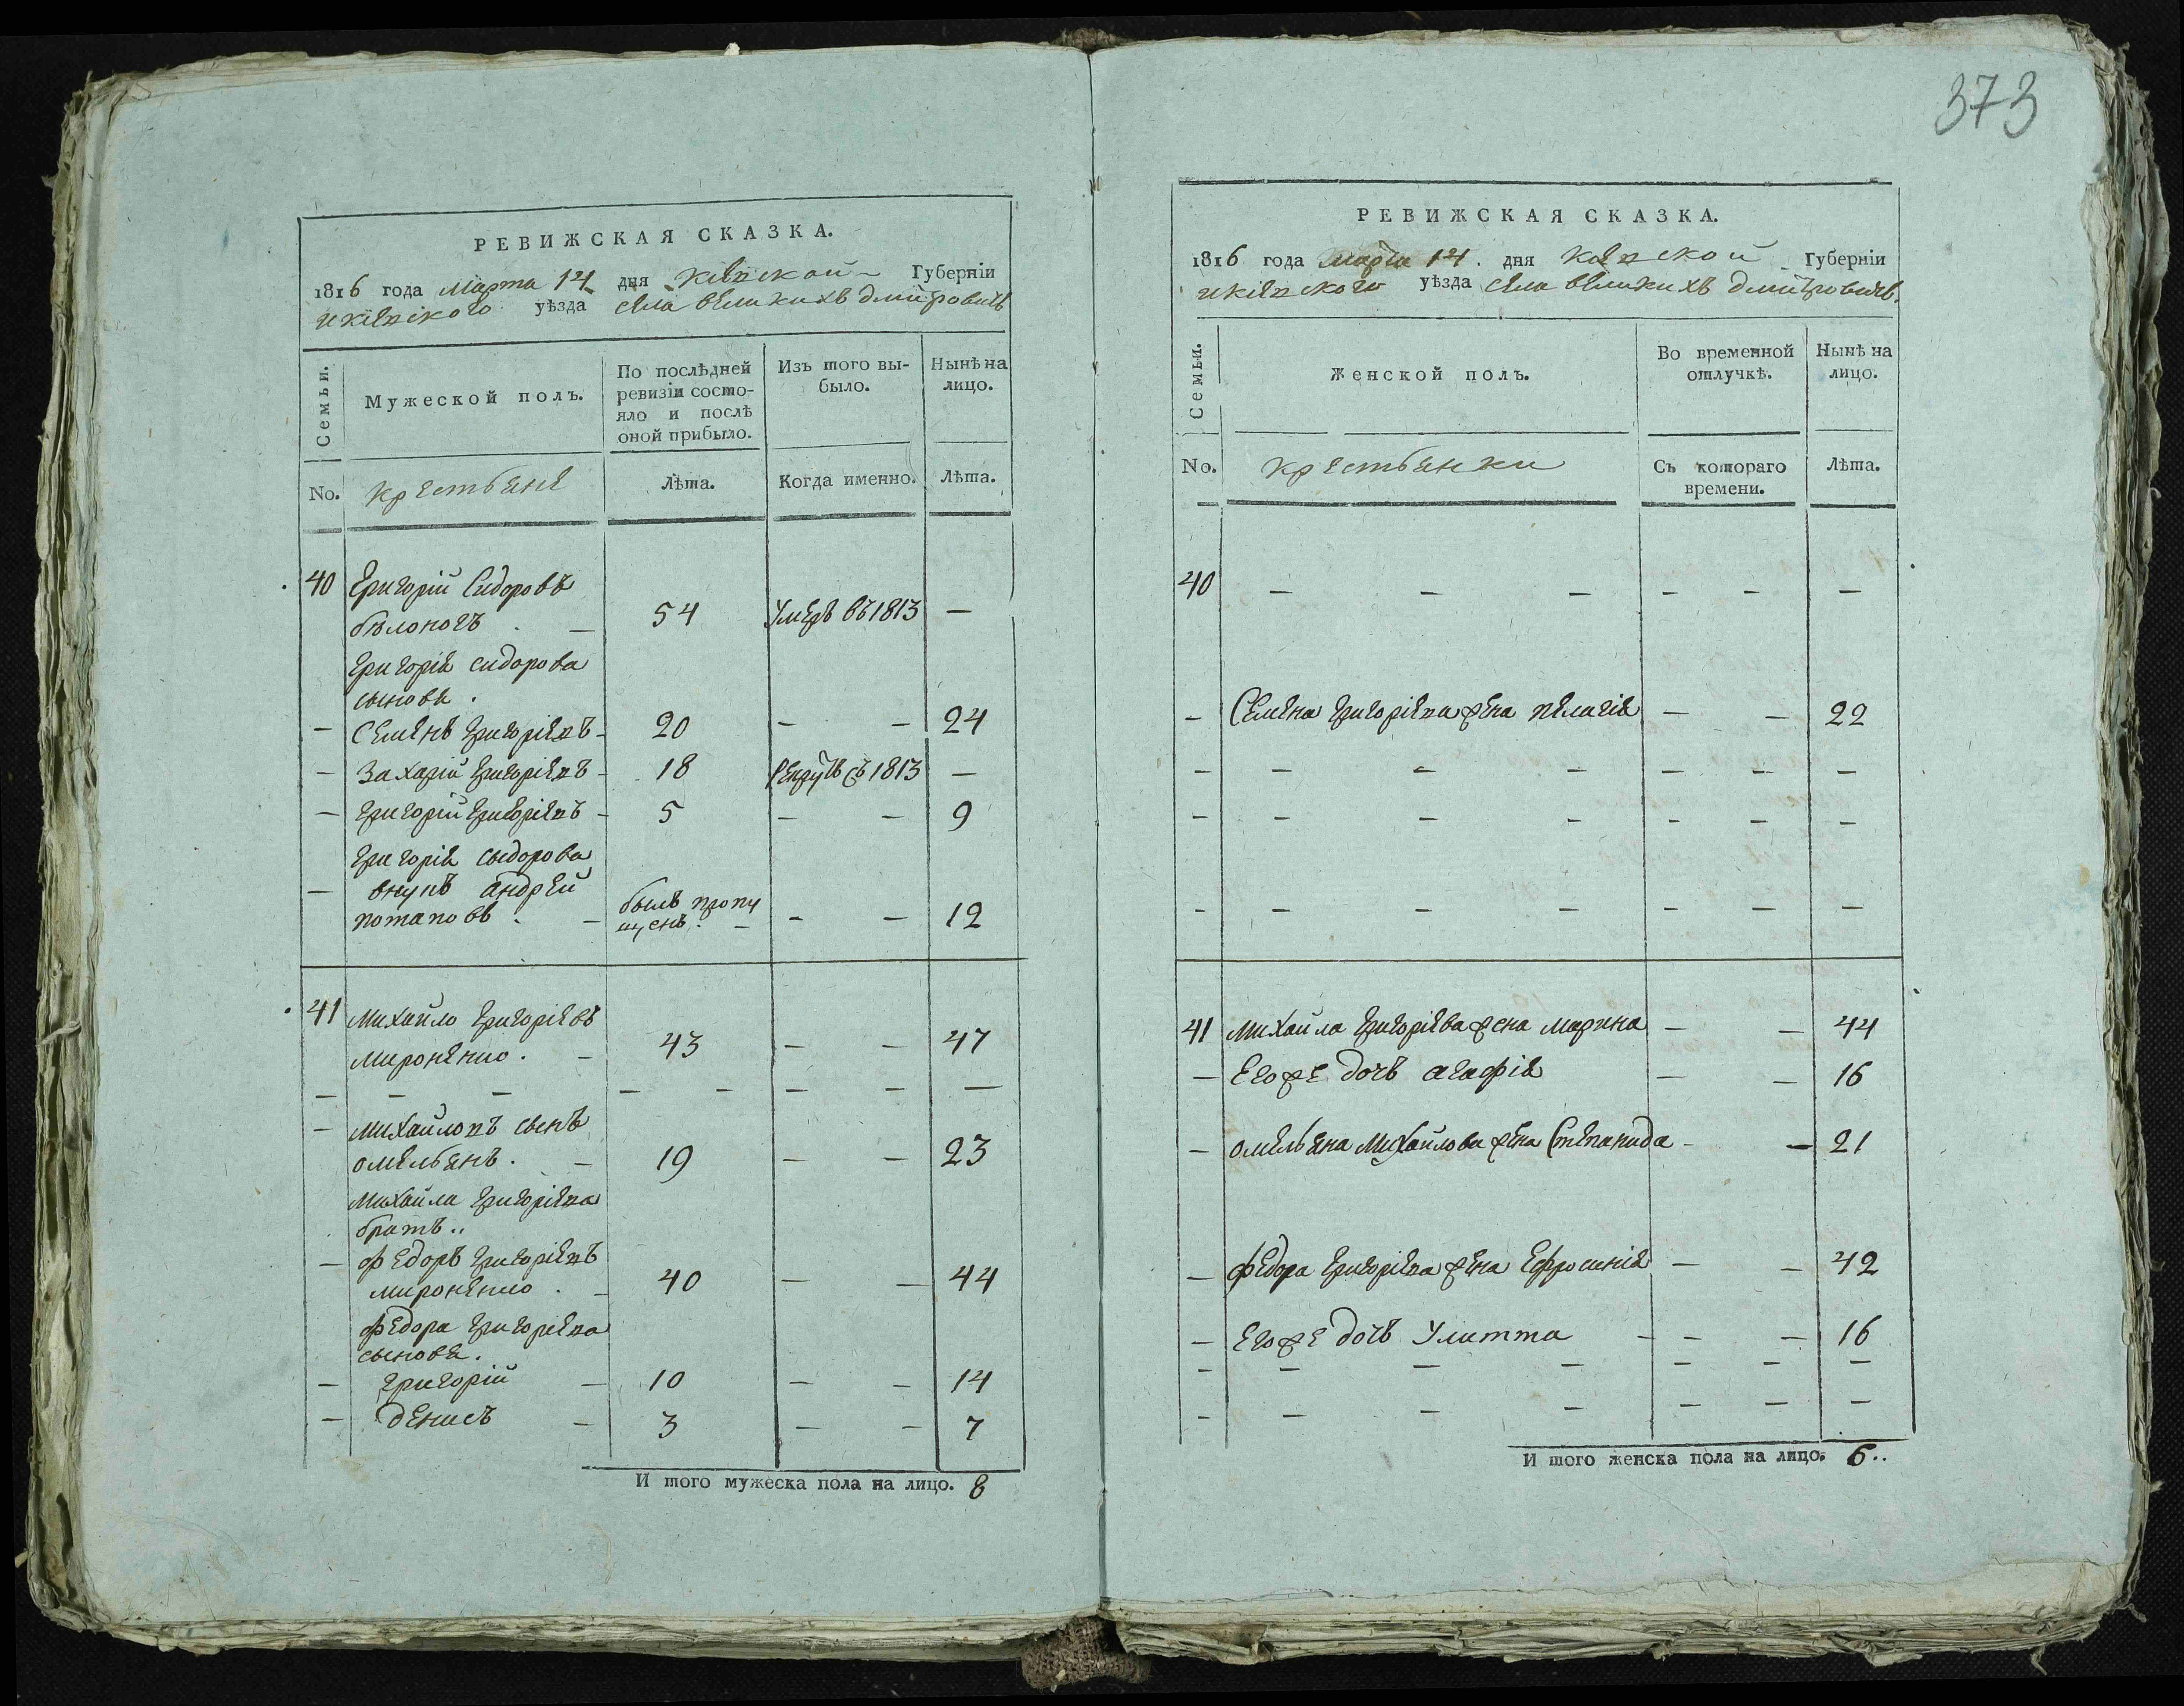 РЕВИЖСКАЯ СКАЗКА.
1816 года марта 14 дня Кіевской Губерніи
икіевского уѣзда села великихъ дмитровичь
Семьи.
Мужеской полъ.
По послѣдней
ревизіи состо-
яло и послѣ
оной прибыло.
Изъ того вы-
было.
Нынѣ на
лицо.
No. крестьяне Лѣта. Когда именно. Лѣта.
40 Григорій Сидоровъ
бѣлоногъ . — 54 умеръ въ 1813 —
Григорія сидорова
сыновя .
— Семенъ Григоріевъ - 20 — — 24
— Захарій Григоріевъ - 18 Рекрутъ съ 1813 —
— Григорій Григоріевъ - 5 — — 9
Григорія сыдорова
— внукъ андрей
потаповъ . — былъ пропу
щенъ . — - — 12
41 Михайло Григоріевъ
мироненко . — 43 — — 47
— — — — — — — —
— Михайловъ сынъ
омельянъ . — 19 — — 23
Михайла Григоріева
братъ ..
— Федоръ Григоріевъ
мироненко . — 40 — — 44
Федора Григорева
сыновя .
— Григорій — 10 — — 14
— денисъ — 3 — — 7
И того мужеска пола на лицо. 8
373
РЕВИЖСКАЯ СКАЗКА.
1816 года марта 14 . дня Кіевской Губерніи
икіевского уѣзда села великихъ дмитровичь.
Семьи.
Женской полъ.
Во временной
отлучкѣ.
Нынѣ на
лицо.
No. крестьянки Съ котораго
времени. Лѣта.
40 — — — — — —
— Семена Григоріева жена пелагія — — 22
— — — — — — —
— — — — — — —
— — — — — — —
41 Михайла Григоріева жена марина — — 44
— Егоже дочь агафія — — 16
— омельяна Михайлова жена Степанида - — 21
— Федора Григоріева жена Ефросинія — — 42
— Егоже дочь Улитта — — — 16
— — — — — — —
— — — — — — —
И того женска пола на лицо. 6..